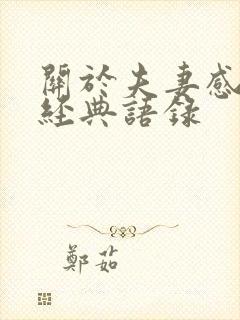 關於夫妻感
經典語錄
鄭茹